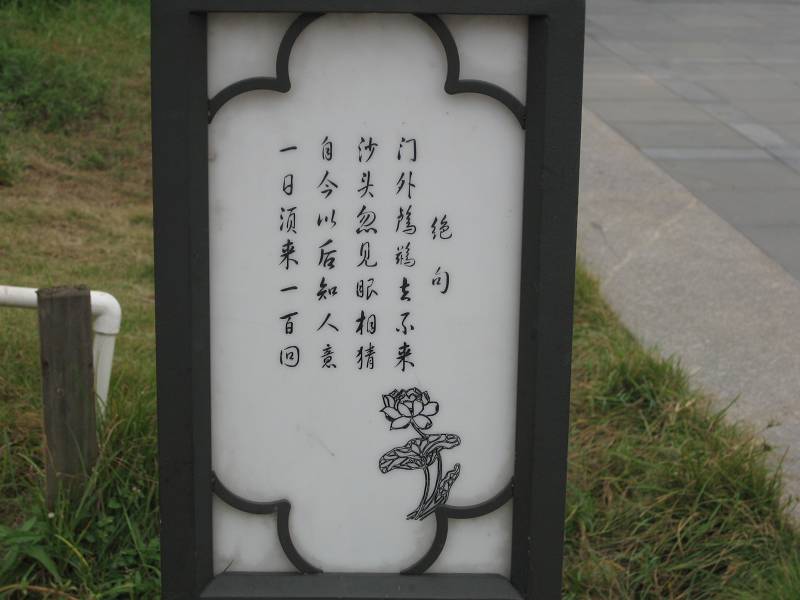 绝句
门外鸬鹚去不来
沙头忽见眼相猜
自今以后知人意
一日须来一百回